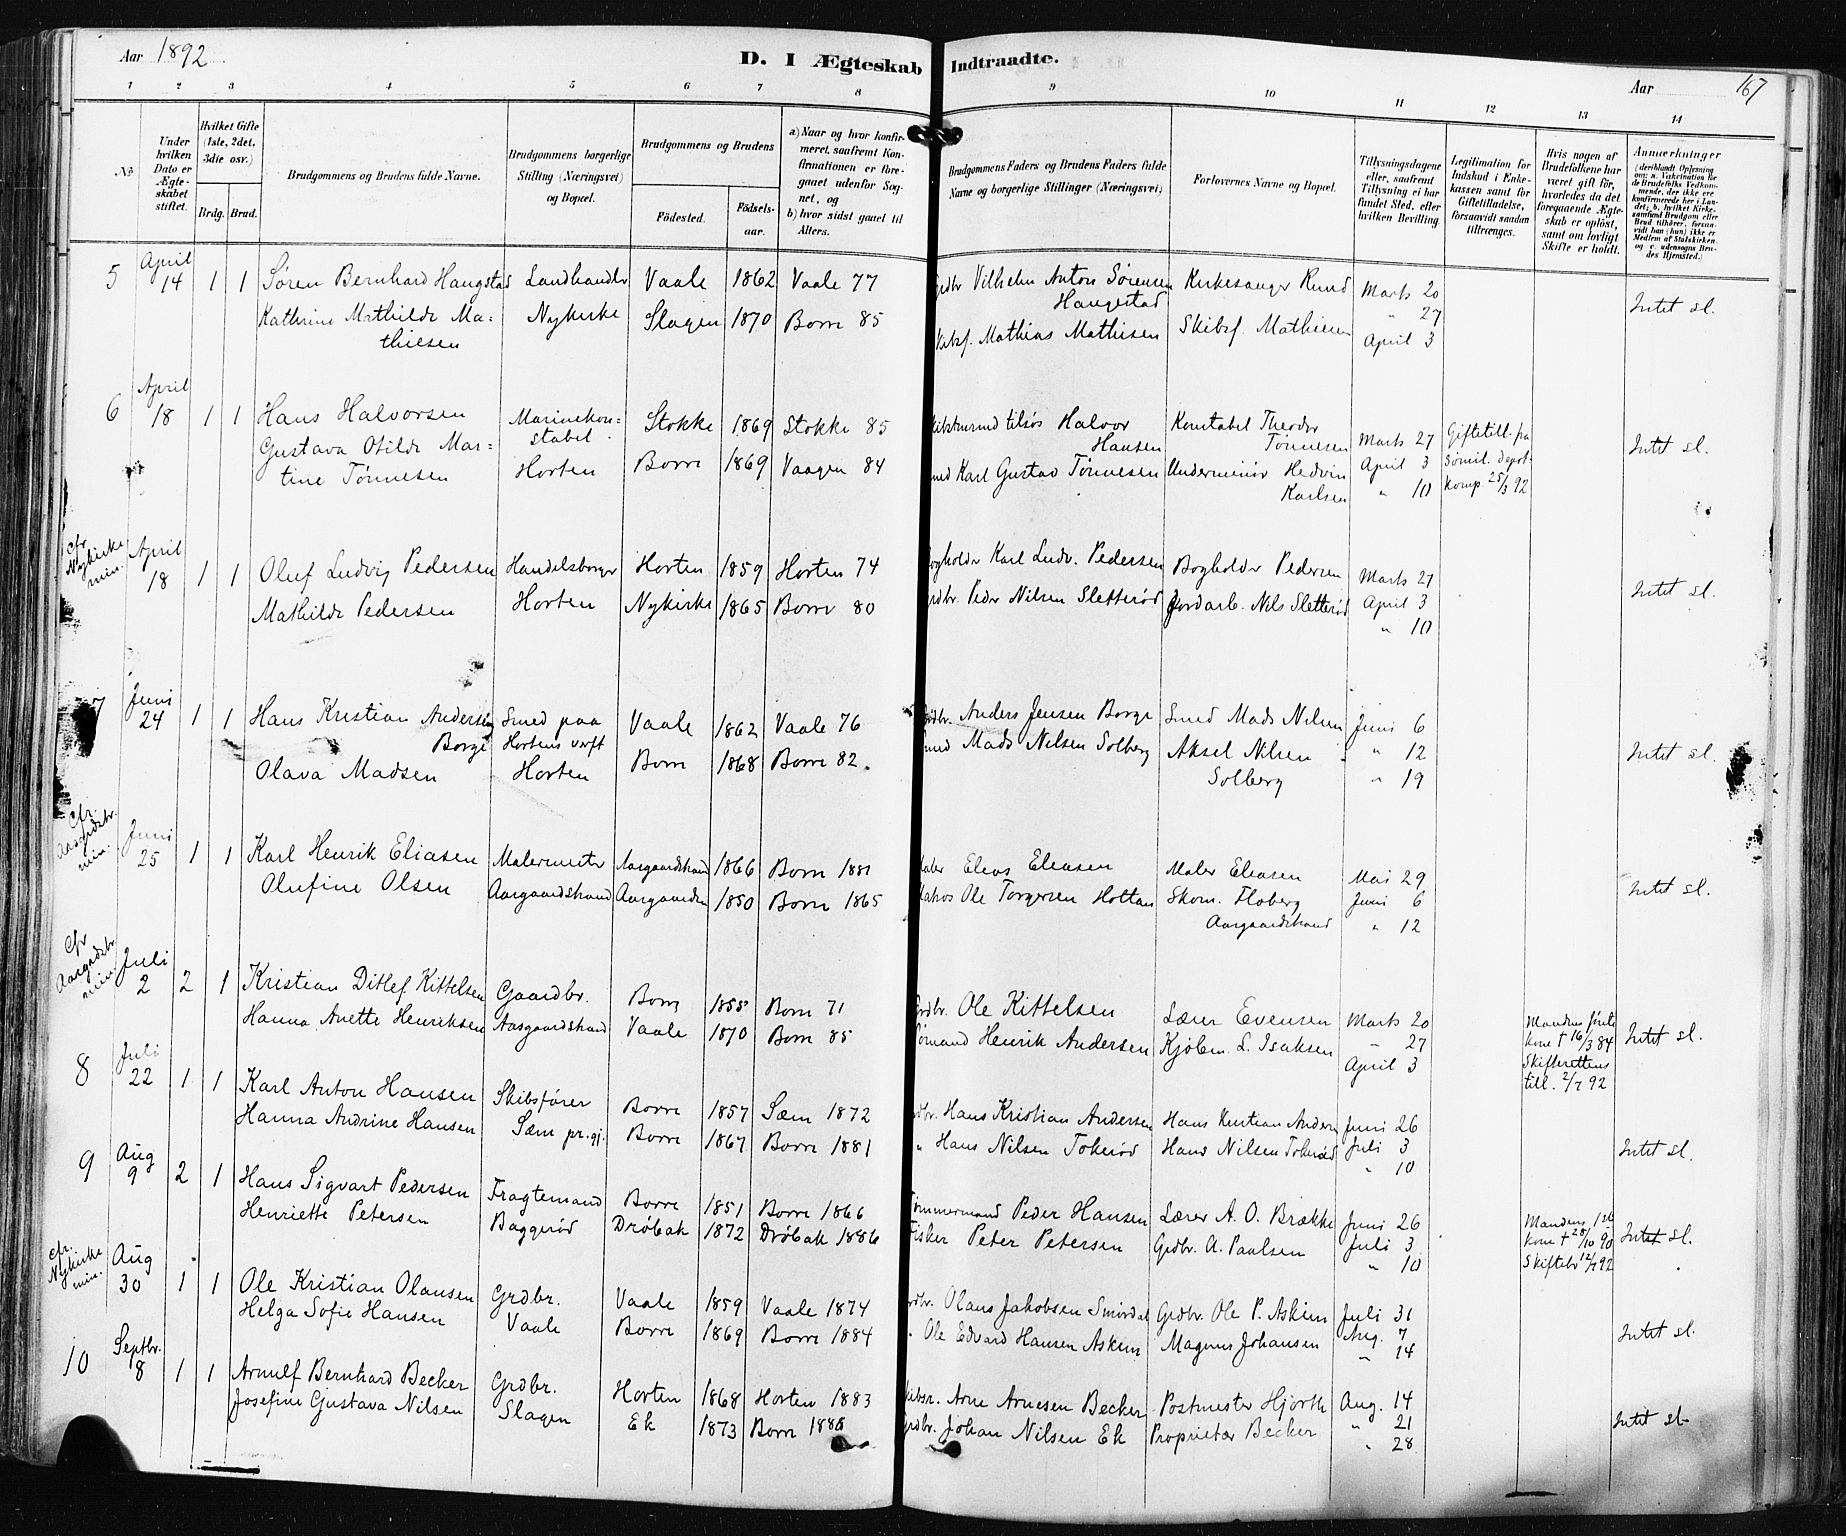 Aar 1892
D. I Ægteskab Indtraadte.
Aar 167
1 2 3 4 5 6 7 8 9 10 11 12 13 14
No
Under hvilken Dato er Ægteskabet stiftet.
Hvilket Gifte (1ste, 2det, 3die osv.)
Brdg. Brud.
Brudgommens og Brudens fulde Navne.
Brudgommens borgerlige Stilling (Næringsvei) og Bopæl.
Brudgommens og Brudens
Fødested.
Fødselsaar.
a) Naar og hvor konfirmeret, saafremt Konfirmationen er foregaaet udenfor Sognet, og
b) hvor sidst gaaet til Alters.
Brudgommens Faders og Brudens Faders fulde Navne og borgerlige Stillinger (Næringsvei)
Forlovernes Navne og Bopæl.
Tillysningsdagene eller, saafremt Tillysning ei har fundet Sted, efter hvilken Bevilling
Legitimation for Indskud i Enkekassen samt for Giftetilladelse, forsaavidt saadan tiltrænges.
Hvis nogen af Brudefolkene har været gift før, hvorledes da det foregaaende Ægteskab er opløst, samt om lovligt Skifte er holdt.
Anmærkninger
5 April 14 1 1 Søren Bernhard Haugstad Landhandler Vaale 1862 Vaale 77 Grdbr Vilhelm Anton Sørensen Haugestad Kirkesanger Ruud Marts 20
Kathrine Mathilde Mathiesen Nykirke Slagen 1870 Borre 85 Skibsf. Mathias Mathisen Skibsf. Mathiesen " 27 April 3 Intet sl.
6 April 18 1 1 Hans Halvorsen Marinekonstabel Stokke 1869 Stokke 85 Halvor Hansen Konstabel Theodor Tønnesen Marts 27 Giftetill. fra
Gustava Otilde Martine Tønnesen Horten Borre 1869 Vaagen 84 Smed Karl Gustav Tønnesen Underminør Hedvin Karlsen April 3 " 10 Sømil. Depot-komp 25/3 92 Intet sl.
cfr Nykirke min. April 18 1 1 Oluf Ludvig Pedersen Handelsborger Horten 1859 Horten 74 Bogholder Karl Ludv. Pedersen Bogholder Pedersen Marts 27
Mathilde Pedersen Horten Nykirke 1865 Borre 80 Grdbr. Peder Nilsen Sletterød Jordarb. Nils Sletterød April 3 " 10 Intet sl.
7 Juni 24 1 1 Hans Kristian Andersen Borge Smed paa Hortens verft Vaale 1862 Vaale 76 Grdbr. Anders Jensen Borge Smed Mads Nilsen Juni 6
Olava Madsen Horten Borre 1868 Borre 82. Smed Mads Nilsen Solberg Aksel Nilsen Solberg " 12 " 19 Intet sl.
Cfr. Aasgrdstr. min. Juni 25 1 1 Karl Henrik Eliasen Malermester Aasgaardstrand 1866 Borre 1881 Maler Elias Eliasen Maler Eliasen Mai 29
Olufine Olsen Aasgaardstrand Aasgaarden 1850 Borre 1865 Matros Ole Torgersen Holtan Skom. Floberg Aasgaardstrand Juni 6 " 12 Intet sl.
Cfr Aasgrdstr. min. Juli 2 2 1 Kristian Ditlef Kittelsen Gaardbr. Borre 1855 Borre 71 Grdbr. Ole Kittelsen Lærer Evensen Marts 20 Mandens første
Hanna Anette Henriksen Aasgaardstrand Vaale 1870 Borre 85 Sømand Henrik Andersen Kjøbm. L. Isaksen " 27 April 3 Kone † 16/3 84 Skifterettens till. 2/7 92 Intet sl.
8 Juli 22 1 1 Karl Anton Hansen Skibsfører Borre 1857 Sæm 1872 Grdbr. Hans Kristian Andersen Hans Kristian Andersn Juni 26
Hanna Andrine Hansen Sæm pr.gj. Borre 1867 Borre 1881 " Hans Nilsen Tokerød Hans Nilsen Tokerød Juli 3 " 10 Intet sl.
9 Aug 9 2 1 Hans Sigvart Pedersen Fragtemand Borre 1851 Borre 1866 Tømmermand Peder Hansen Lærer A. O. Brække Juni 26 Mandens 1ste
Henriette Petersen Baggerød Drøbak 1872 Drøbak 1886 Fisker Peter Petersen Grdbr. A. Paulsen Juli 3 " 10 Kone † 28/10 90 Skiftebr 12/7 92 Intet sl.
cfr. Nykirke min. Aug 30 1 1 Ole Kristian Olausen Grdbr. Vaale 1859 Vaale 1874 Grdbr. Olaus Jakobsen Smirdal Grdbr. Ole P. Askim Juli 31
Helga Sofie Hansen Vaale Borre 1869 Borre 1884 " Ole Edvard Hansen Askim Magnus Johansen Aug. 7 " 14 Intet sl.
10 Septbr. 8 1 1 Arnulf Bernhard Becker Grdbr. Horten 1868 Horten 1883 Skibsr. Arne Arnesen Becker Postmester Hjorth Aug. 14
Josefine Gustava Nilsen Slagen Ek 1873 Borre 1888 Grdbr. Johan Nilsen Ek Proprietær Becker " 21 " 28 Intet sl.